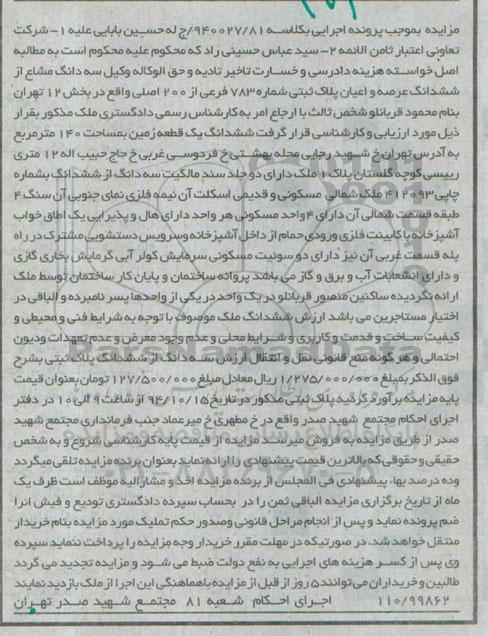 مزایده بموجب پرونده اجرایی بکلاسه ۹۴۰۰۲۷/۸۱/ج له حسین بابایی علیه ۱- شرکت
تعاونی اعتبار ثامن الائمه ۲- سید عباس حسینی راد که محکوم علیه محکوم است به مطالبه
اصل خواسته هزینه دادرسی و خسارت تاخیر تادیه و حق الوکاله وکیل سه دانگ مشاع از
ششدانگ عرصه و اعیان پلاک ثبتی شماره ۷۸۳ فرعی از ۲۰۰ اصلی واقع در بخش ۱۲ تهران
بنام محمود قربانلو شخص ثالث با ارجاع امر به کارشناس رسمی دادگستری ملک مذکور بقرار
ذیل مورد ارزیابی و کارشناسی قرار گرفت ششدانگ یک قطعه زمین بمساحت ۱۴۰ مترمربع
به آدرس تهران خ شهید رجایی محله بهشتی خ فردوسی غربی خ حاج حبیب اله ۱۲ متری
رییسی کوچه گلستان پلاک ۱ ملک دارای دو جلد سند مالکیت سه دانگ از ششدانگ بشماره
چاپی ملک شمالی مسکونی و قدیمی اسکلت آن نیمه فلزی نمای جنوبی آن سنگ ۴
طبقه قسمت شمالی آن دارای ۴ واحد مسکونی هر واحد دارای هال و پذیرایی یک اطاق خواب
آشپزخانه با کابینت فلزی ورودی حمام از داخل آشپزخانه وسرویس دستشویی مشترک در راه
پله قسمت غربی آن نیز دارای دو سوئیت مسکونی سرمایش کولر آبی گرمایش بخاری گازی
و دارای انشعابات آب و برق و گاز می باشد پروانه ساختمان و پایان کار ساختمان توسط ملک
ارائه نگردیده ساکنین منصور قربانلو در یک واحد در یکی از واحدها پسر نامبرده و الباقی در
اختیار مستاجرین می باشد ارزش ششدانگ ملک موصوف با توجه به شرایط فنی و محیطی و
کیفیت ساخت و قدمت و کاربری و شرایط محلی و عدم وجود معرض و عدم تعهدات ودیون
احتمالی و هر گونه منع قانونی نقل و انتقال ارزش سه دانگ از ششدانگ پلاک ثبتی بشرح
فوق الذکر بمبلغ ۱/۲۷۵/۰۰۰/۰۰۰ ریال معادل مبلغ ۱۲۷/۵۰۰/۰۰۰ تومان بعنوان قیمت
پایه مزایده برآورد گردید پلاک ثبتی مذکور در تاریخ ۹۴/۱۰/۱۵ از ساعت ۹ الی ۱۰ در دفتر
اجرای احکام مجتمع شهید صدر واقع در خ مطهری خ میرعماد جنب فرمانداری مجتمع شهید
صدر از طریق مزایده به فروش میرسد مزایده از قیمت پایه کارشناسی شروع و به شخص
حقیقی و حقوقی که بالاترین قیمت پیشنهادی را ارائه نماید بعنوان برنده مزایده تلقی میگردد
وده درصد بها، پیشنهادی فی المجلس از برنده مزایده اخذ و مشارالیه موظف است ظرف یک
ماه از تاریخ برگزاری مزایده الباقی ثمن را در بحساب سپرده دادگستری تودیع و فیش انرا
ضم پرونده نماید و پس از انجام مراحل قانونی وصدور حکم تملیک مورد مزایده بنام خریدار
منتقل خواهد شد، در صورتیکه در مهلت مقرر خریدار وجه مزایده را پرداخت ننماید سپرده
وی پس از کسر هزینه های اجرایی به نفع دولت ضبط می شود و مزایده تجدید می گردد
طالبین و خریداران می توانند ۵ روز از قبل از مزایده با هماهنگی این اجرا از ملک بازدید نمایند
۱۱۰/۹۹۸۶۲ اجرای احکام شعبه ۸۱ مجتمع شهید صدر تهران